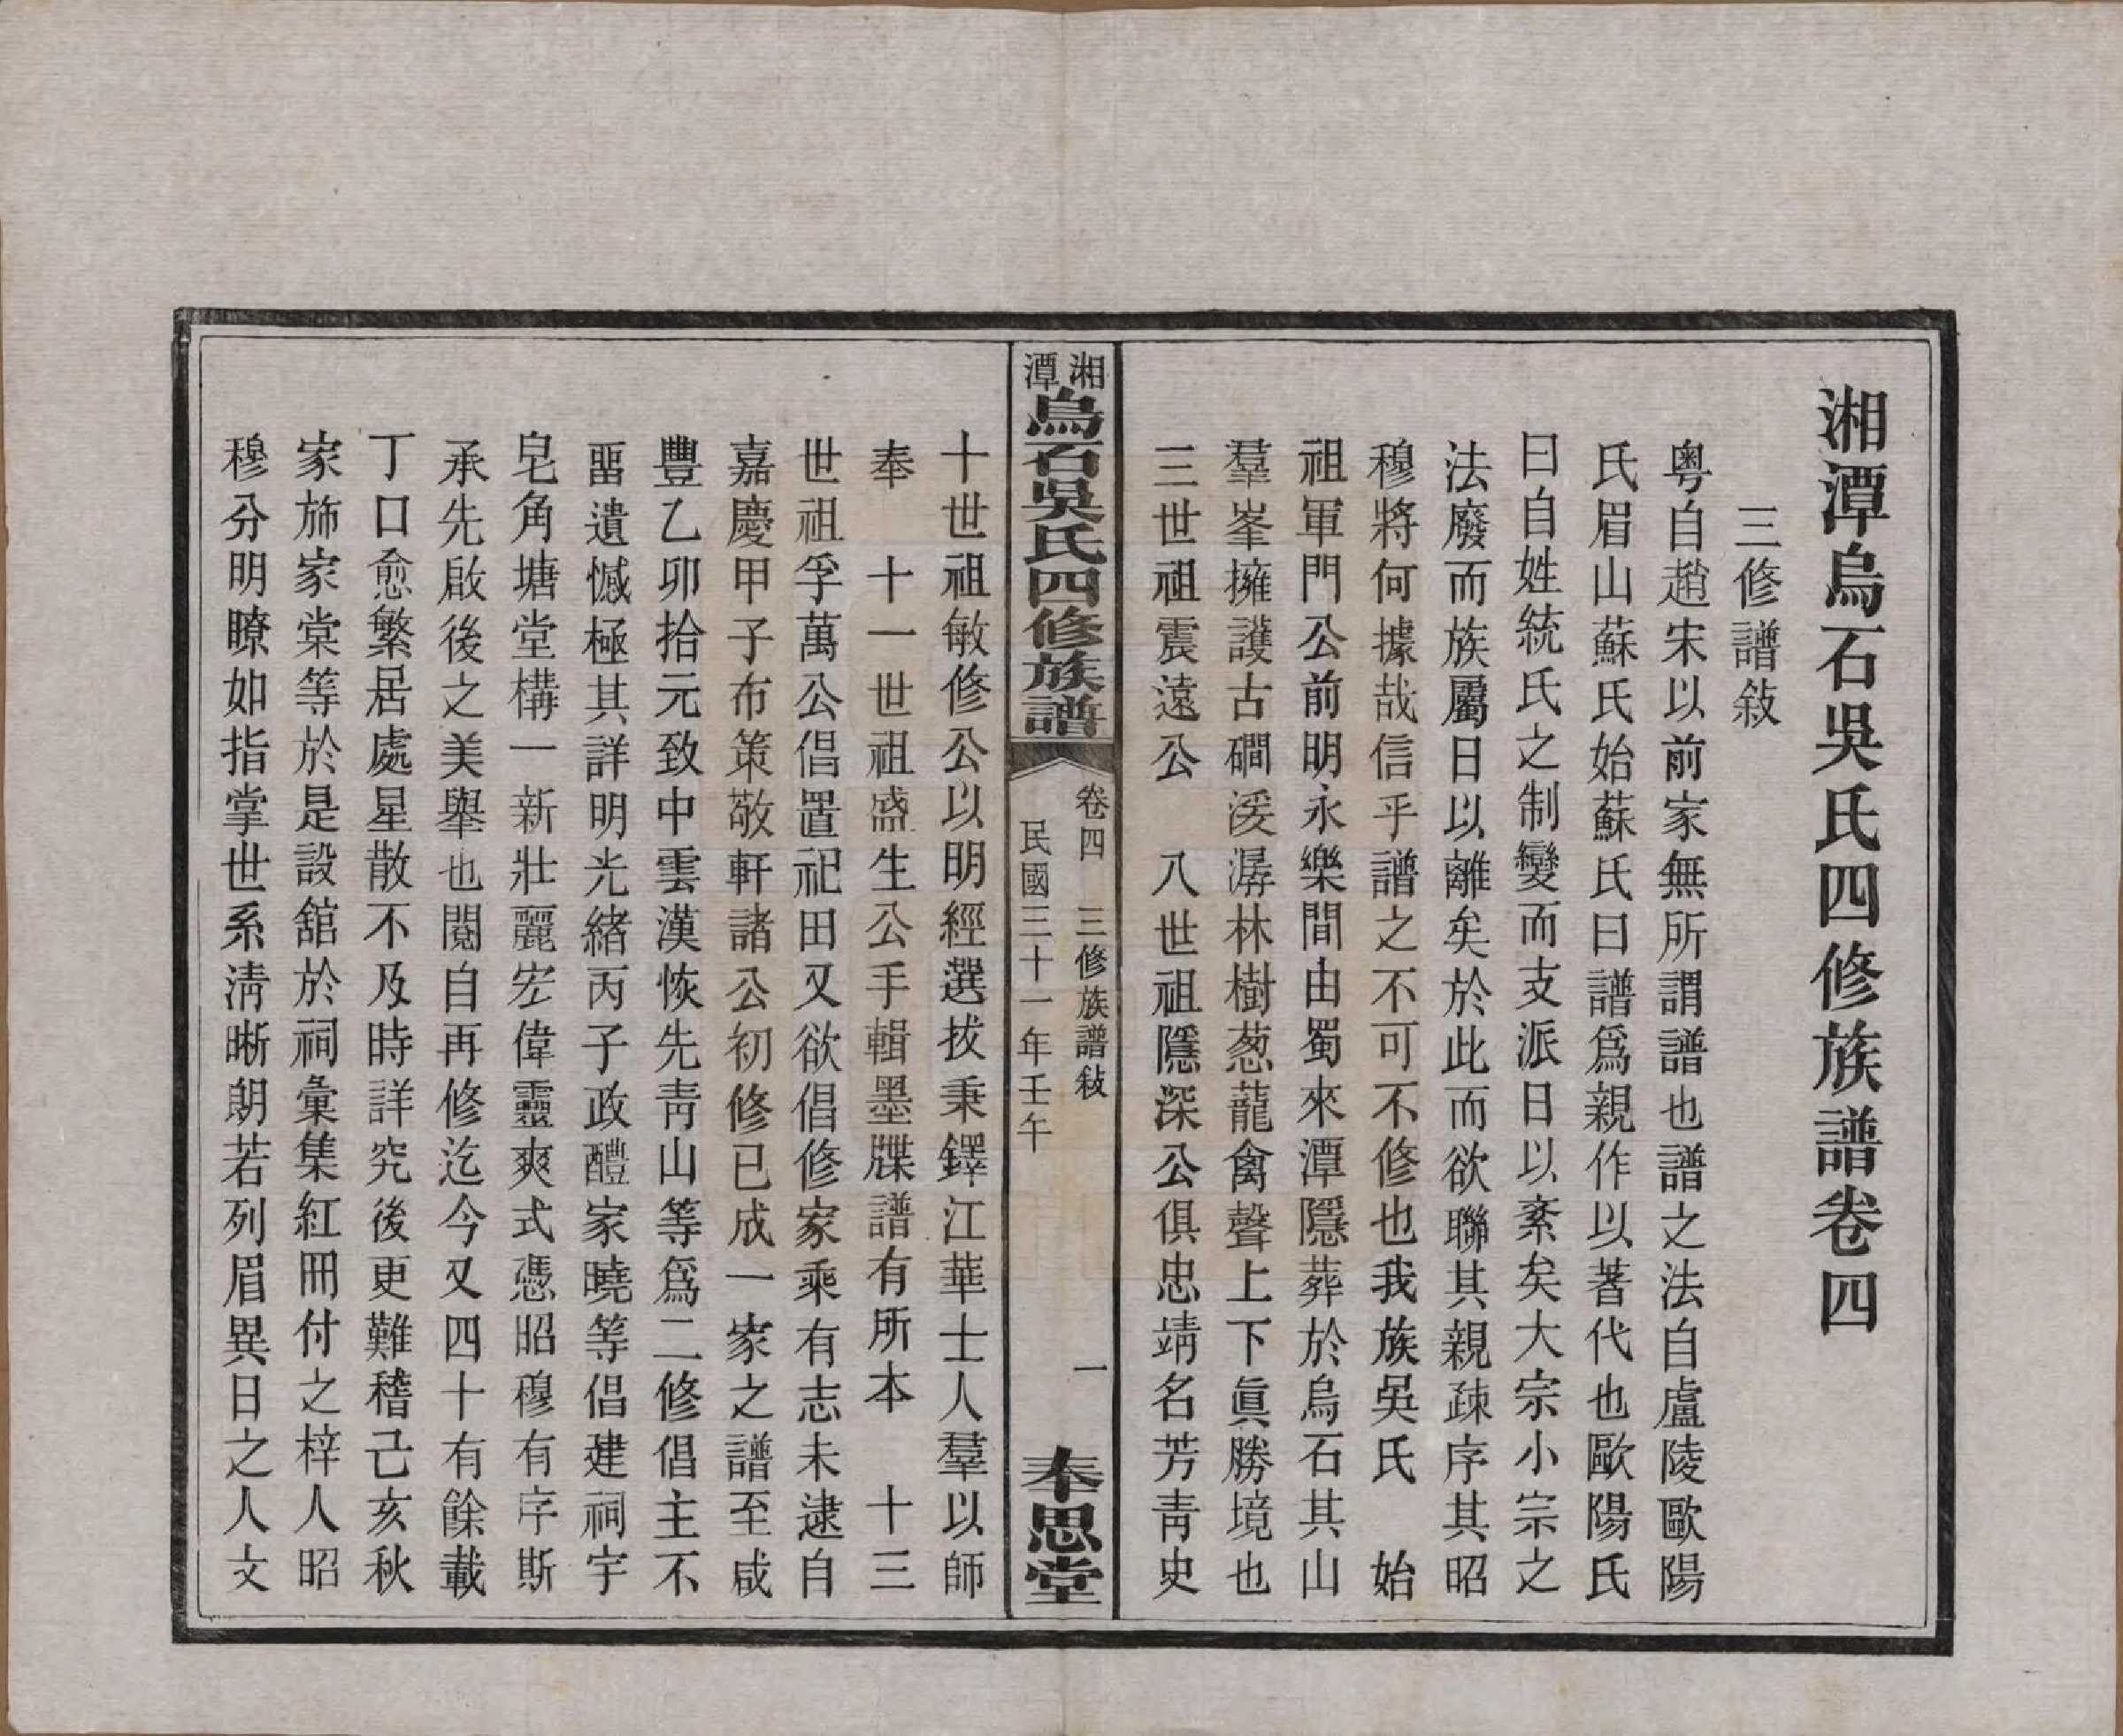 湘潭烏石吳氏四修族譜卷四
三修譜敍
粵自趙宋以前家無所謂譜也譜之法自盧陵歐陽
氏眉山蘇氏始蘇氏曰譜爲親作以著代也歐陽氏
曰自姓統氏之制變而支派日以紊矣大宗小宗之
法廢而族屬日以離矣於此而欲聯其親疎序其昭
穆將何據哉信乎譜之不可不修也我族吳氏　始
祖軍門公前明永樂間由蜀來潭隱葬於烏石其山
羣峯擁護古磵湲潺林樹葱蘢禽聲上下眞勝境也
三世祖震遠公　八世祖隱深公俱忠靖名芳靑史
湘潭烏石吳氏四修族譜
卷四　三修族譜敍　一
民國三十一年壬午
奉思堂
十世祖敏修公以明經選拔秉鐸江華士人羣以師
奉　十一世祖盛生公手輯墨牒譜有所本　十三
世祖孚萬公倡置祀田又欲倡修家乘有志未逮自
嘉慶甲子布策敬軒諸公初修已成一家之譜至咸
豐乙卯拾元致中雲漢恢先靑山等爲二修倡主不
畱遺憾極其詳明光緒丙子政醴家曉等倡建祠宇
皂角塘堂構一新壯麗宏偉靈爽式憑昭穆有序斯
承先啟後之美舉也閱自再修迄今又四十有餘載
丁口愈繁居處星散不及時詳究後更難稽己亥秋
家斾家棠等於是設舘於祠彙集紅冊付之梓人昭
穆分明瞭如指掌世系淸晰朗若列眉異日之人文